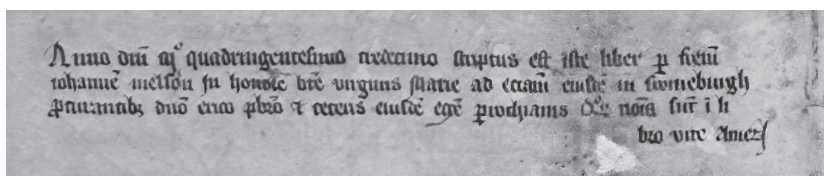 Anno dni mº quadringentesimo tredecimo scriptus est iste liber p frem
iohanne nielson In honore bte virginis Marie ad ecciam eiusde in swineburgh
pcurantibz dno erico pbro & ceteris eiusde ecce prochianis quoꝝ noia sut i li
bro vite Amen